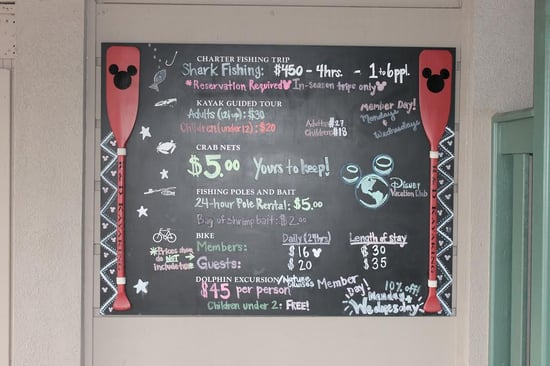 CHARTER FISHING TRIP
Shark Fishing: $450 - 4hrs. - 1 to 6 ppl.
*Reservation Required In-season trips only
KAYAK GUIDED TOUR
Adults (12 & up): $30
Children (under 12): $20
Adults $27
Children $18
Member Day!
Mondays
& Wednesdays
CRAB NETS
$5.00 Yours to keep!
Disney
Vacation Club
FISHING POLES AND BAIT
24-hour Pole Rental: $5.00
Bag of shrimp bait: $2.00
BIKE Daily (24hrs) Length of stay
Members: $16 $30
Guests: $20 $35
*Prices do
NOT
include tax
DOLPHIN EXCURSION/Nature
$45 per person
Children under 2: FREE!
Member
Day!
10% off!
Monday &
Wednesday
KAYAKING